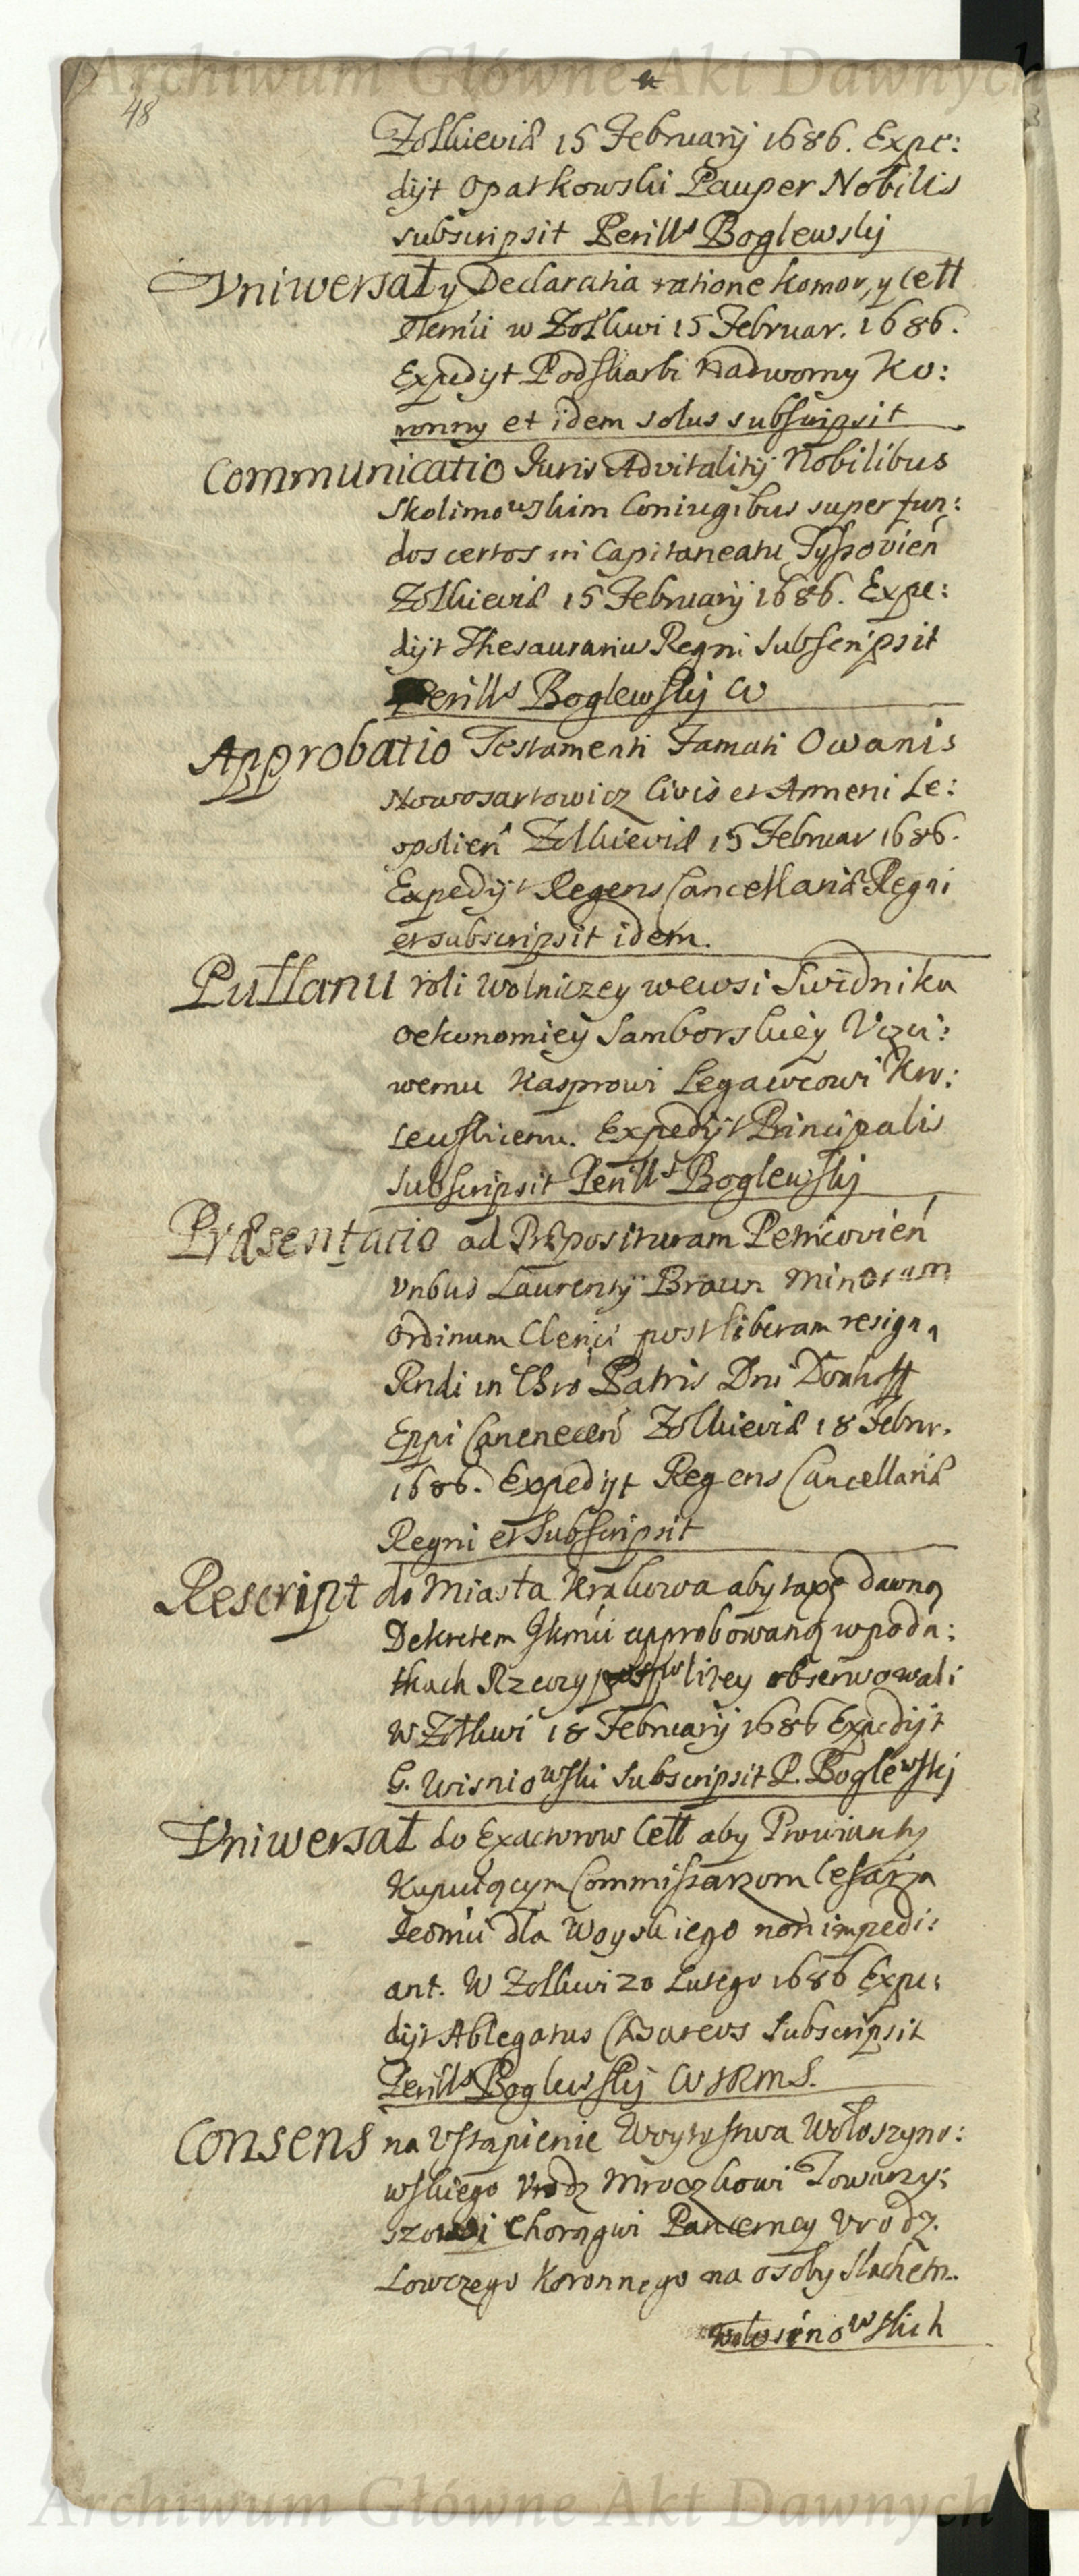 Archiwum Główne Akt Dawnych
48
Zolkieviæ 15 Februarij 1686. Expe:
dijt Opatkowski Pauper Nobilis
subscripsit Perills Boglewskj
Vniwersał y Declaratia ratione komor, y cełł
Niemii w Zołkwi 15 Februar. 1686.
Expedyt Podskarbi Nadworny Ko:
ronny et idem solus subscripsit
Communicatio Juris Advitalitij Nobilibus
Skolimowskim Coniugibus super fun:
dos certos in Capitaneatu
Zolkieviæ 15 Februarij 1686. Expe:
dijt Thesaurarius Regni Subscripsit
Perills Boglewskj
Approbatio Testamenti Famati Owanis
Nowosartowicz Civis et Armeni Le:
opolień Zolkieviæ 15 Februar 1686.
Expedijt Regens Cancellariæ Regni
et subscripsit idem.
roli Wolniczey wewsi Swidniku
Oekonomiey Samborskiey Vczci:
wemu Kasprowi Legawcowi Kro:
lewskiemu. Expedijt Principalis
Subscripsit Perills Boglewskj
Præsentatio ad Præposituram
Laurentij Braun Minorum
Ordinum Clerici post liberam resign
Rndi in Chrō Patris Dni Donhoff
Eppi Zolkieviæ 18 Febru.
1686. Expedijt Regens Cancellariæ
Regni et Subscripsit
Rescript do Miasta Krakowa aby taxę dawną
Dekretem Jkmci approbowaną w poda:
tkach Rzeczypospolitey obserwowali
W Zołkwi 18 Februarij 1686 Expedijt
G. Wisniowski Subscripsit P. Boglewskj
Vniwersał do Exactorow Cełł aby Prowianty
Kupuiącym Commissarzom Cesarza
Jeomci dla Woyska iego non impedi:
ant. W Zolkwi 20 Lutego 1686 Expe:
dijt Ablegatus Cæsareus Subscripsit
Perills Boglewskj
Consens na Vstąpienie Woytostwa Wołoszyno:
wskiego Vrodz Mroczkowi Towarzy:
szowi Chorągwi Pancerney Vrodz.
Lowczego Koronnego na osoby slachetn.
Wołosinowskich
Archiwum Główne Akt Dawnych